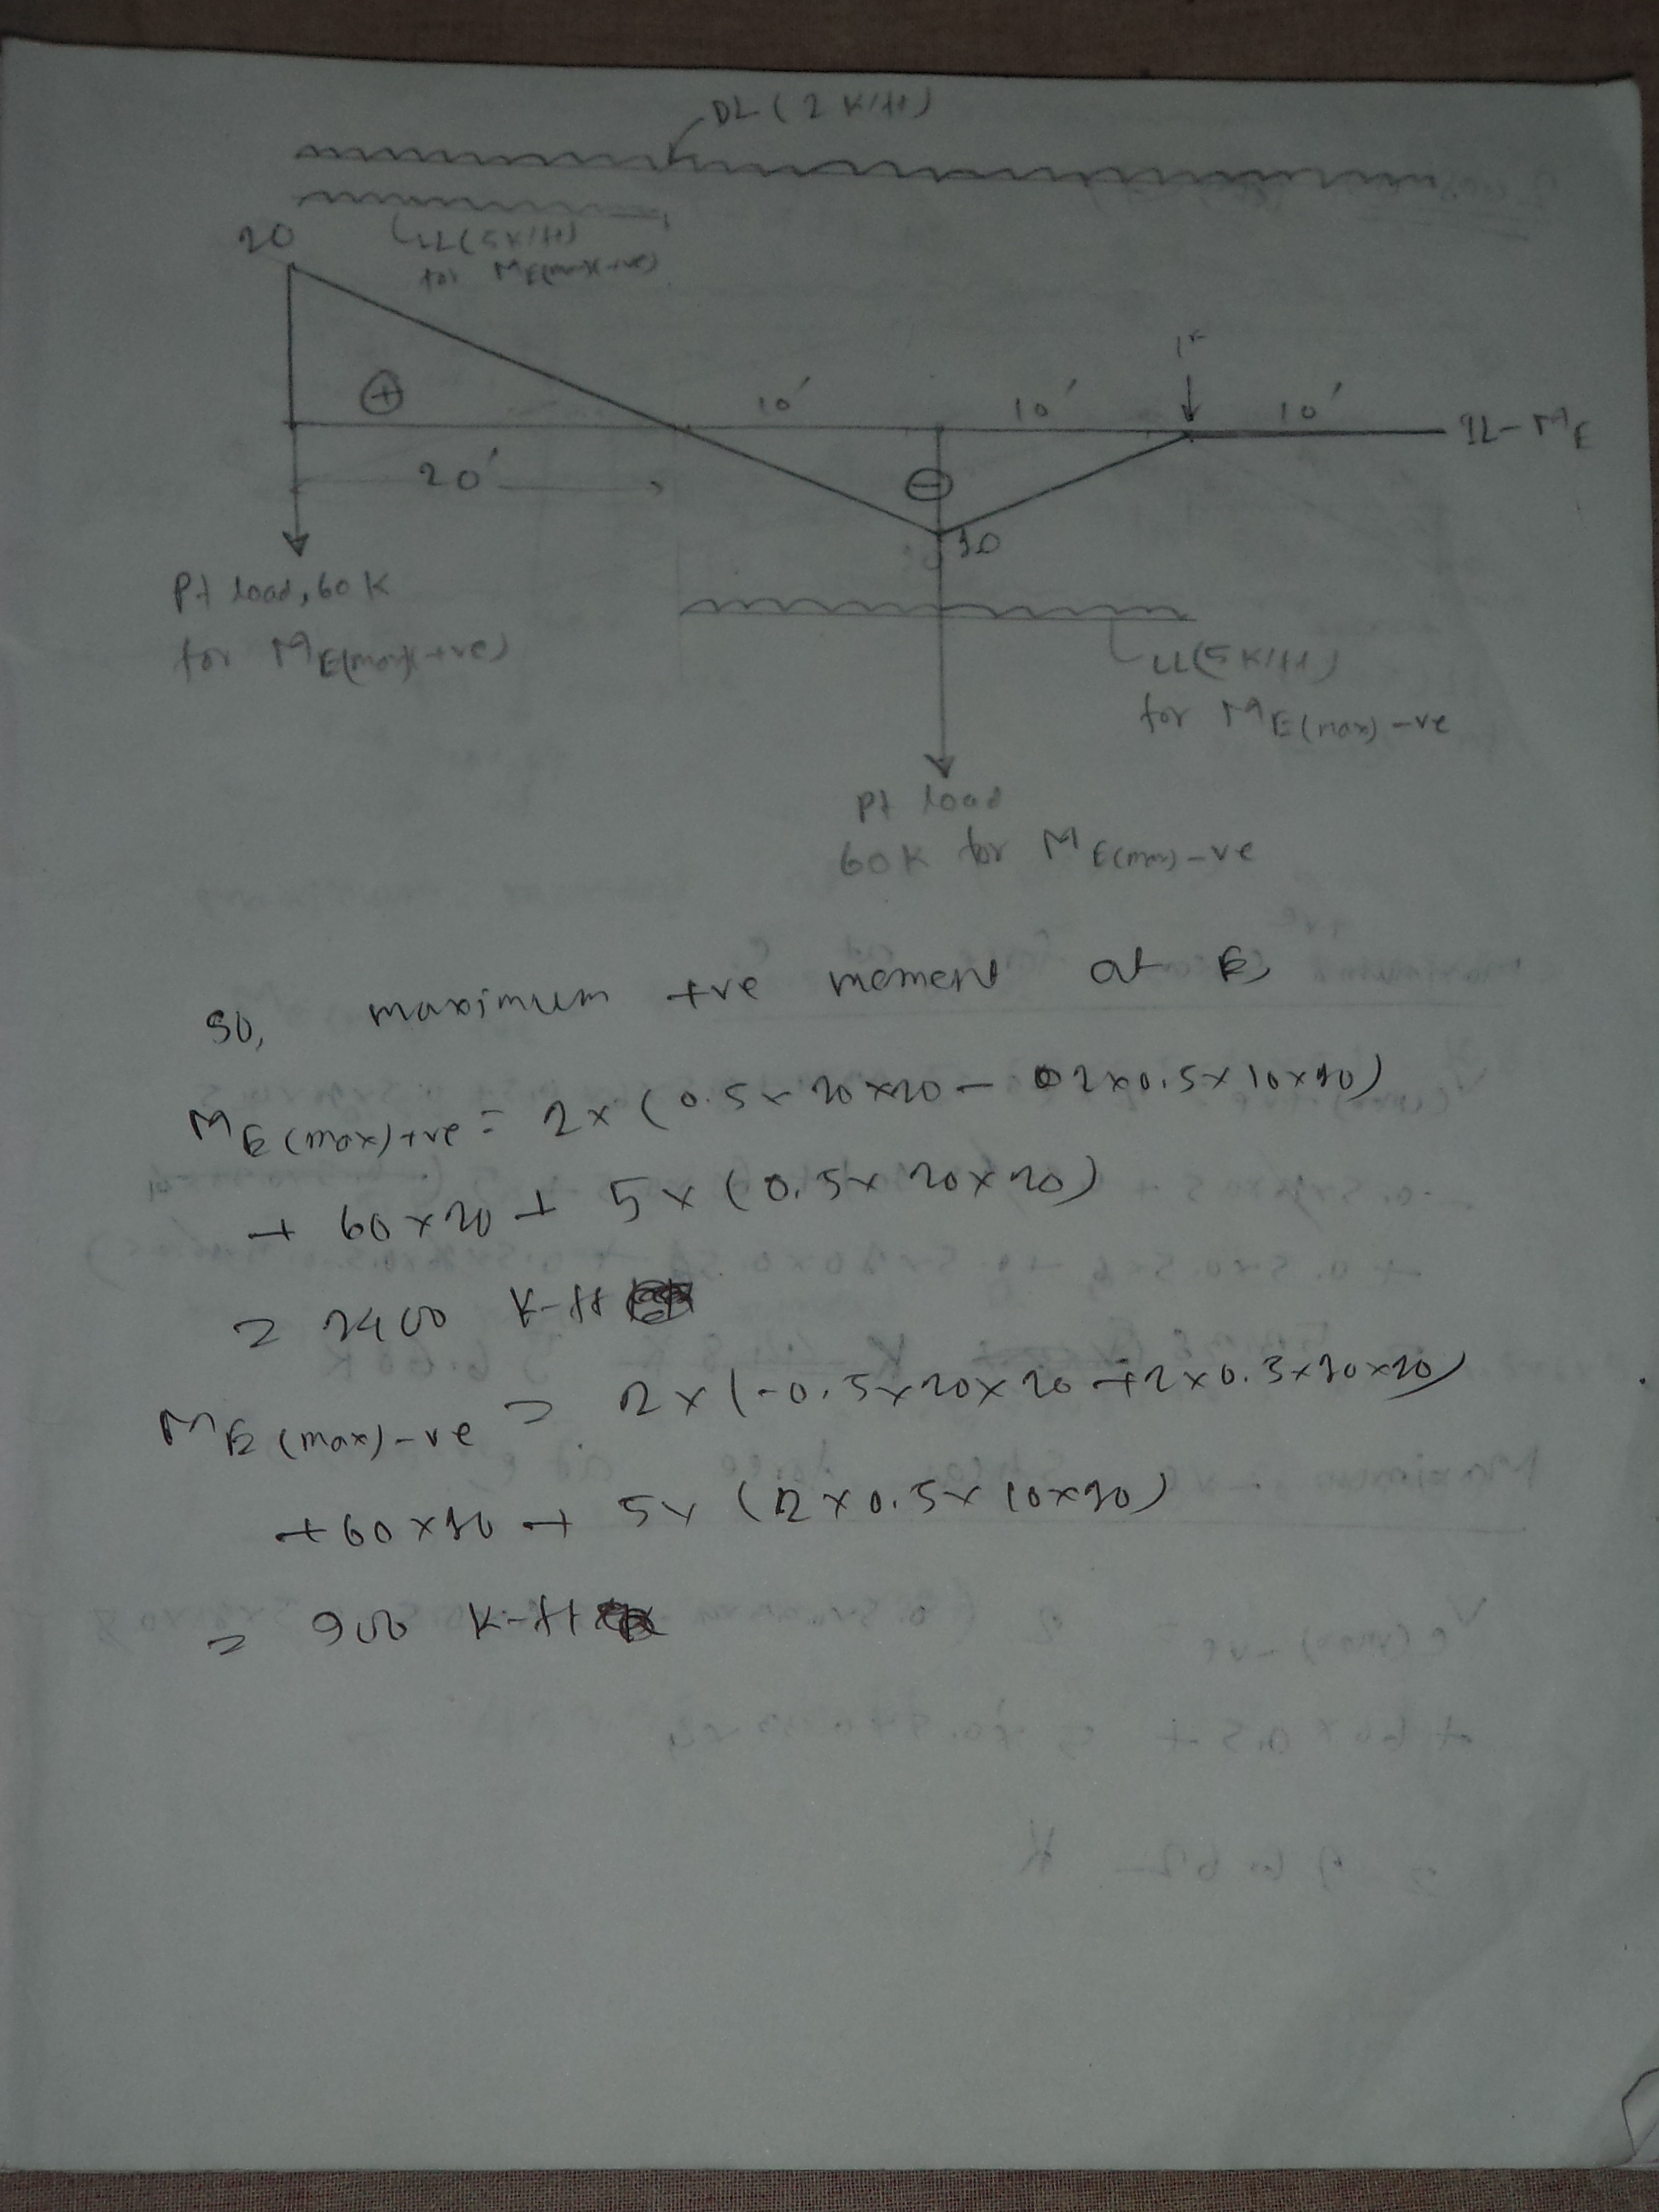 DL (2 K/ft)
20
LL (5K/ft)
for ME(max+ve)
1K
+
10'
10'
10'
IL-ME
20'
-
10
Pt load, 60 K
for ME(max+ve)
LL(5 K/ft)
for ME(max)-ve
Pt load
60K for ME(max)-ve
So, maximum +ve moment at E,
ME(max)+ve = 2x(0.5x20x20 - 2x0.5x10x10)
+ 60x20 + 5x(0.5x20x20)
= 2400 K-ft
ME(max)-ve = 2x(-0.5x20x20+2x0.5x10x10)
+60x10 + 5x(2x0.5x10x10)
= 900 K-ft